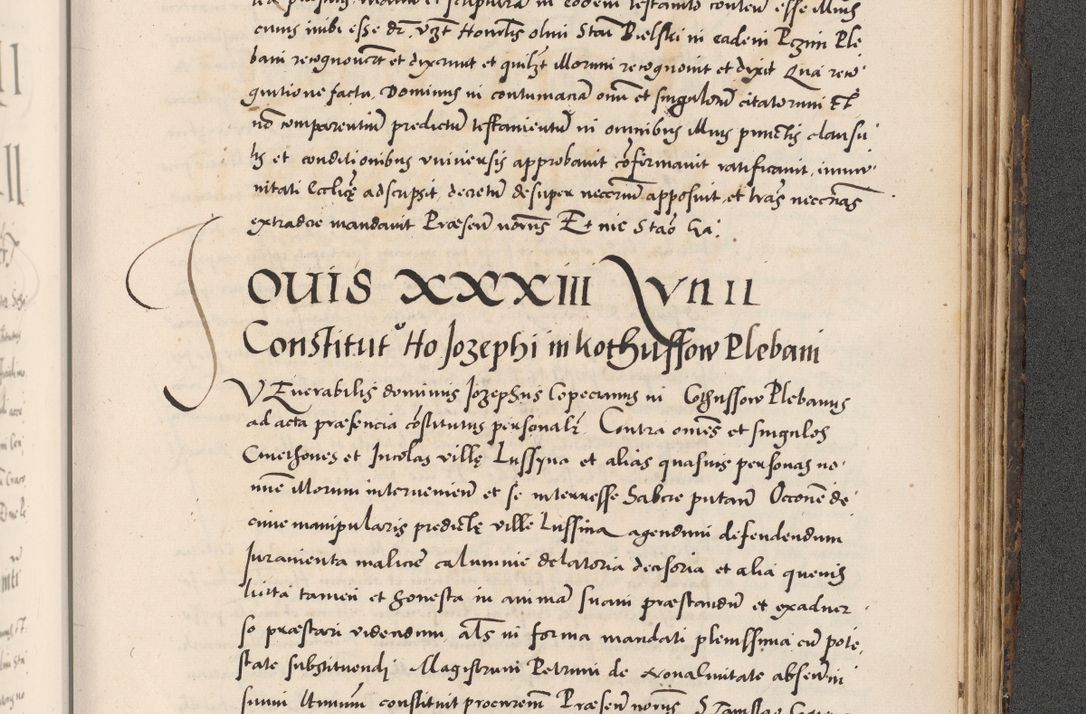 cuius inibi esse dr̃. vz̃t Honestus olim Stañ Bielski in eadem Pczim Ple
bani recognouer̃t et dixerunt et quilz̃t illorum recognouit et dixit Qua reco
gnitione facta, Dominus in contumaciã oniũ et singulorũ citatorum Et
nõ comparentium predictũ testamentũ in omnibus illius punctis clausu
lis et conditionibus vniuersis approbauit cõfirmauit ratificauit, immu
nitati Ecclię adscripsit, decretũ desuper necessariũ apposuit, et lr̃as neccr̃ias
extradere mandauit Præsen̄ nõrijs Et nie Stão ha:
IOUIS XXXIII IVNII
Constitutº Hõ Jozephi in Kothussow Plebani
VEnerabilis dominus Jozephus Copecianus in Cothussow Plebanus
ad acta præsencia cõstitutus personalr̃. Contra omēs et singulos
Cmethones et Incolas villę Lussyna et alias quasuis personas no
mine illorum interuenien̄ et se interresse habere putan̄ Occone de
cime manipularis predictę ville Lussina agendum defendendum
Juramenta malicie calumnie delatoria decisoria et alia queuis
licita tamen et honesta in animã suam præstandũ et ex aduer
so præstari videndum, als̄ in forma mandati plenissima cũ pote
state substituendi Magistrum Petrum de absen̄
suum constituit procurēm Præsen̄ Stanislao